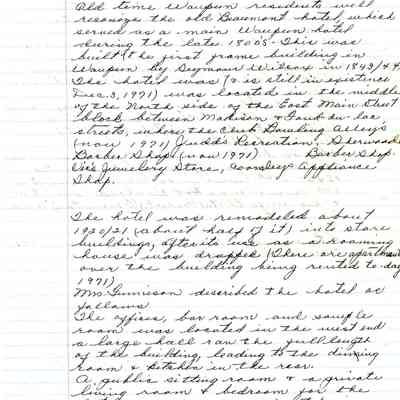 Old time Waupun residents well
recourse the old Beaumont hotel, which
served as a main Waupun hotel
during the late 1800s. This was
built the first frame building in
Waupun by Seymour Wilcox in 1843/44
The hotel was (& is still in existence
Dec. 3, 1971) was located in the middle
of the North side of the East Main Street
block between Madison & Fond du lac
streets, where the Club Bowling Alleys
(now 1971) Judds Recreation, Sherwoods
Barber Shop (now 1971) Barber Shop
Jewelery Store, Appliance
Shop.
The hotel was remodeled about
1920/21 (about half of it) into store
buildings, after its use as a rooming
house was dropped (There are apartments
over the building being rented to-day
1971)
Mrs. Gunnison described the hotel as
follows
The offices, bar room and sample
room was located in the west end
a large hall ran the full length
of the building, leading to the dining
room & kitchen in the rear.
A public sitting room & a private
living room & bedroom for the